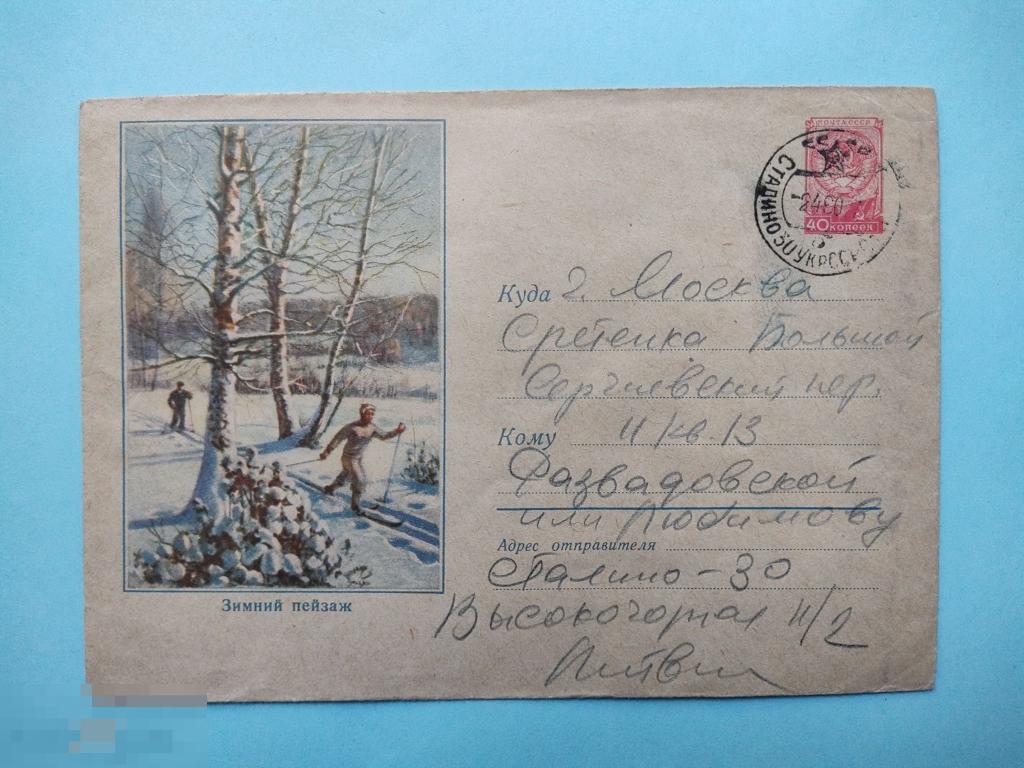 ПОЧТА СССР
40 КОПЕЕК
СТАЛИНО 30 УКР.ССР
Куда г. Москва
Сретенка Большой
Сергиевский пер.
Кому 11 кв. 13
Развадовской
или Любимову
Адрес отправителя
Сталино-30
Высокогорная 11/2
Зимний пейзаж